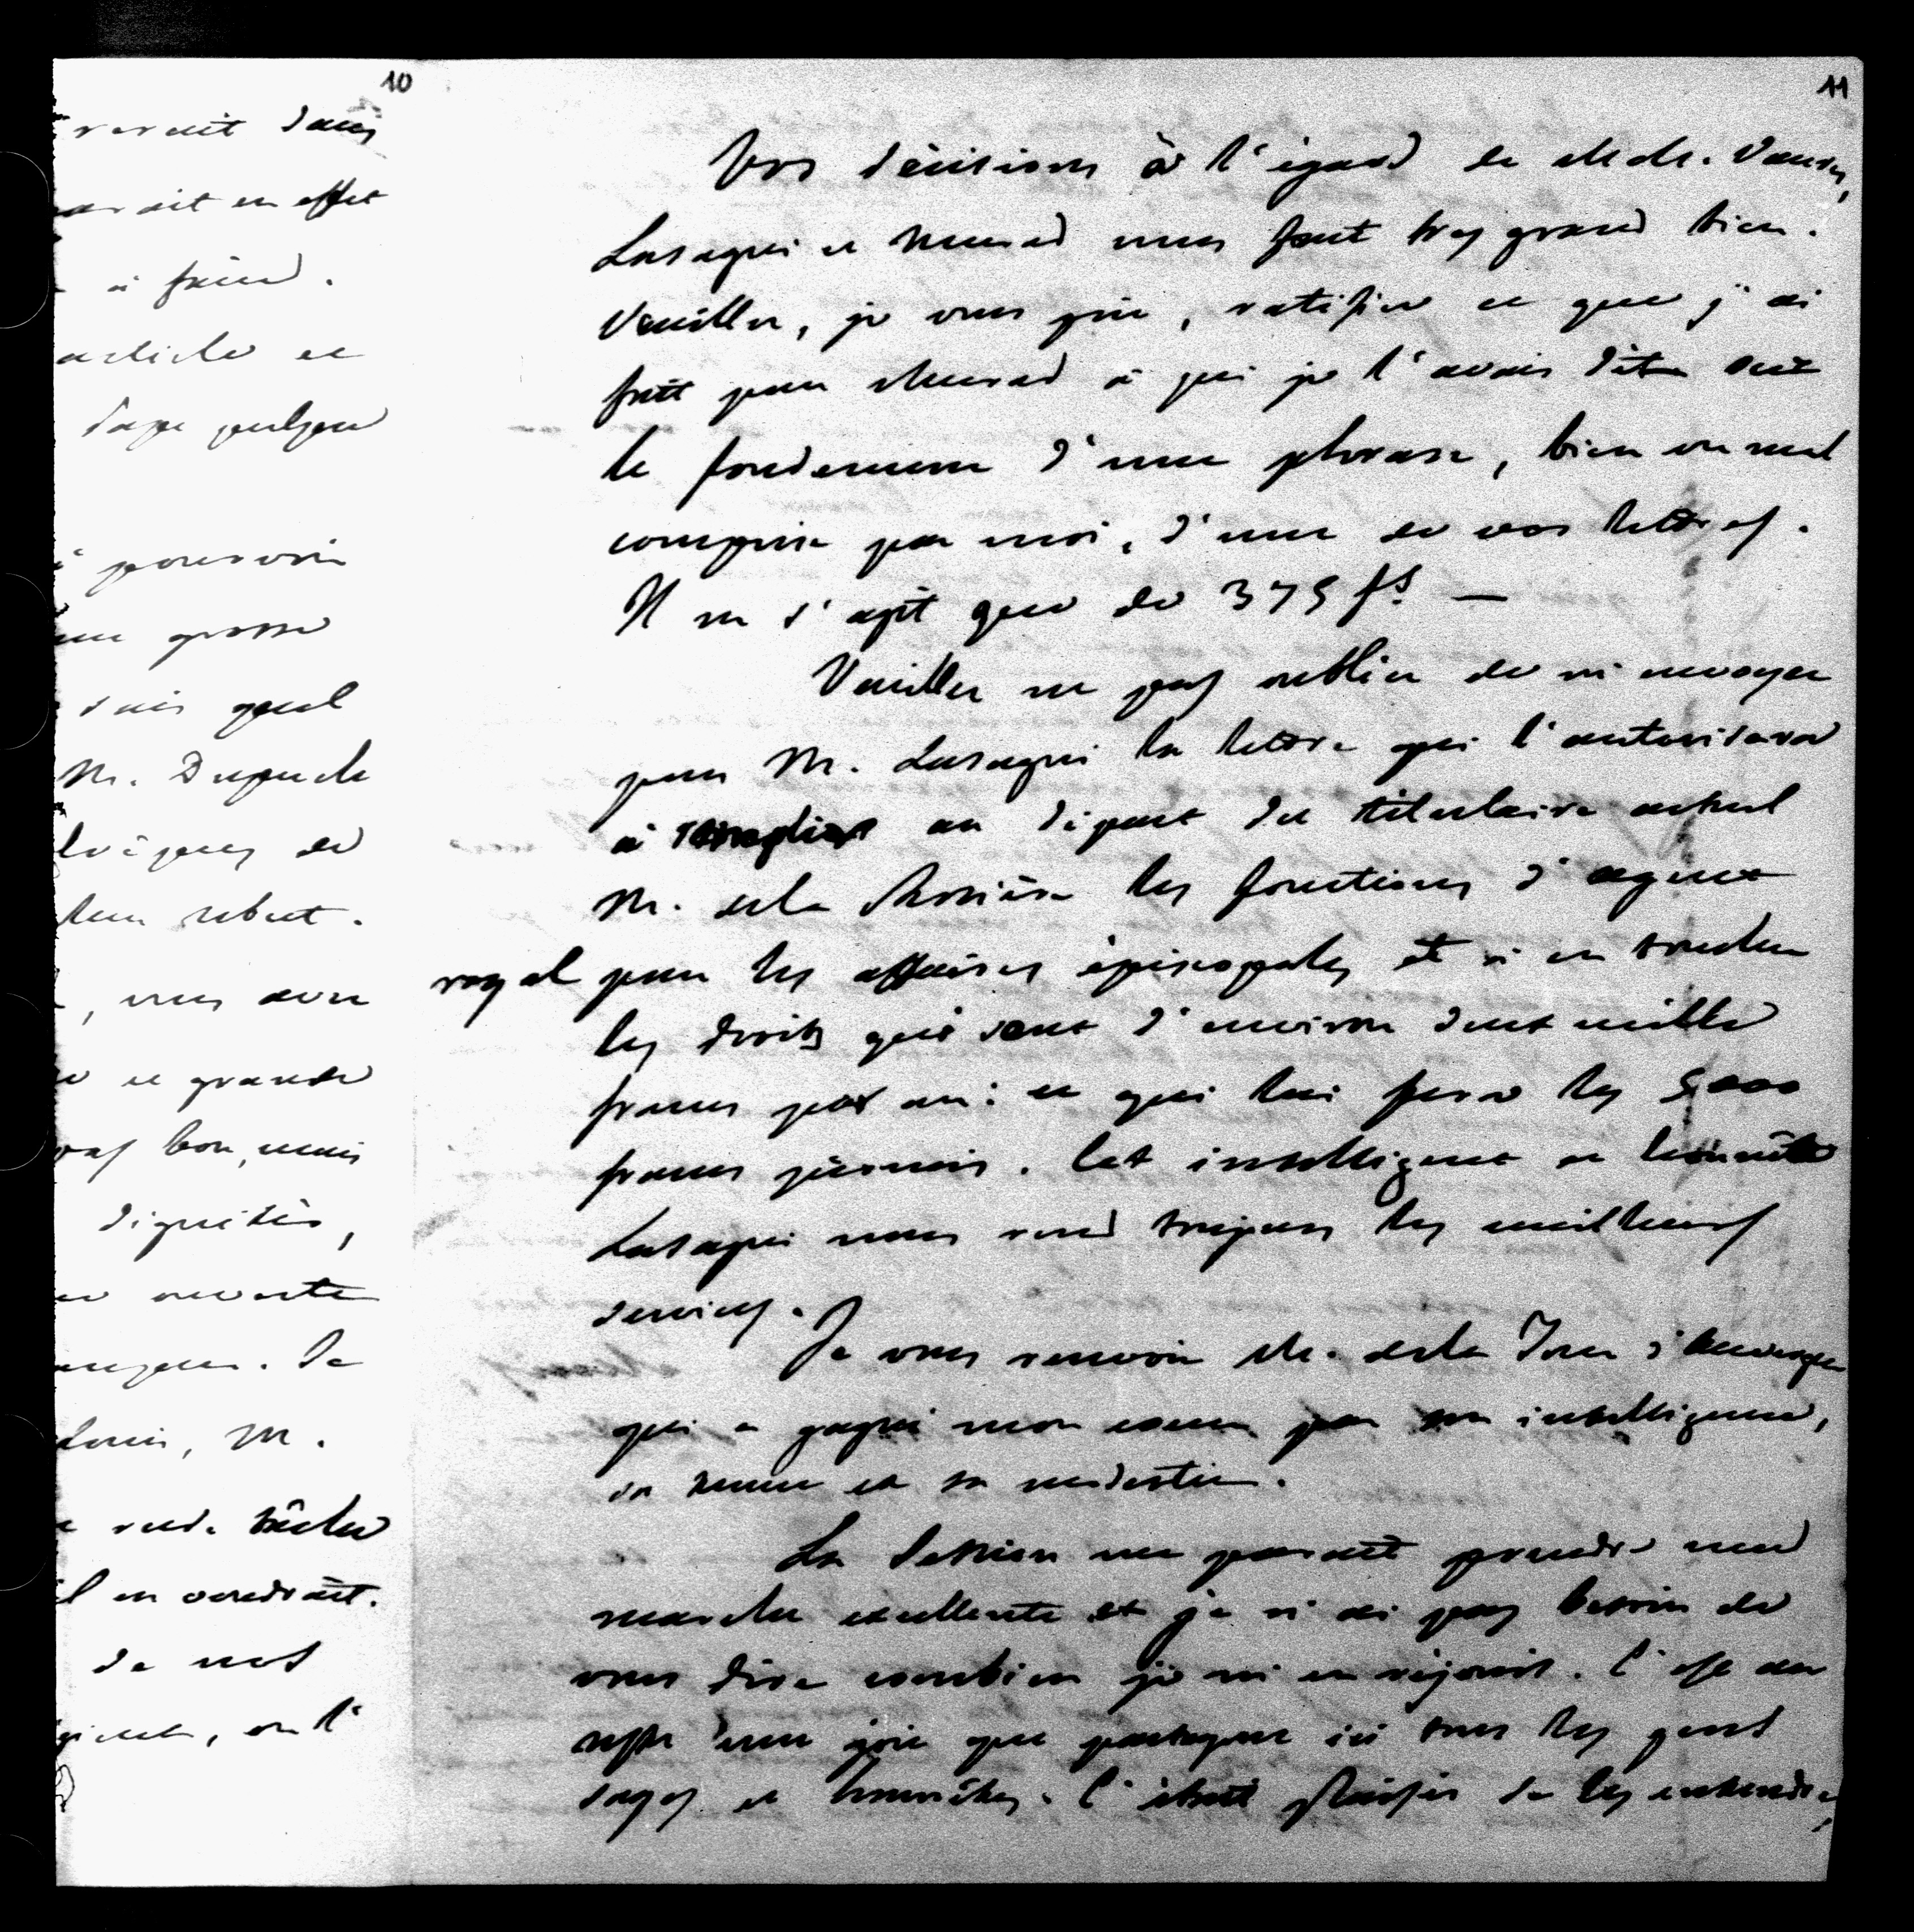 10
venait dans
avait en effet
à faire.
article et
sage quelque
à pourvoir
une grosse
sais quel
M. Dupuch
évêques de
leur rebut.
, vous avez
et grande
pas bon, mais
dignités,
ouverte
. Je
M.
rude tâche
il en voudrait.
de nos
, on l'
11
Vos décisions à l'égard de MM.
Lasagni et Murad nous font très grand bien.
Veuillez, je vous prie, ratifier ce que j'ai
fait pour Murad à qui je l'avais dit sur
le fondement d'une phrase, bien ou mal
comprise par moi, d'une de vos lettres.
Il ne s'agit que de 375 fs. —
Veuillez ne pas oublier de m'envoyer
pour M. Lasagni la lettre qui l'autorisera
à remplir au départ du titulaire actuel
M. de la Rosière les fonctions d'agent
royal pour les affaires épiscopales et à en toucher
les droits qui sont d'environ deux mille
francs par an : ce qui lui fera les 5000
francs promis. Cet intelligent et honnête
Lasagni nous rend toujours les meilleurs
services.
Je vous renvoie M. de la Tour d'Auvergne
qui a gagné mon coeur par son intelligence,
sa tenue et sa modestie.
La session me paraît prendre une
marche excellente et je n'ai pas besoin de
vous dire combien je m'en réjouis. C'est au
reste une joie que partagent ici tous les gens
sages et honnêtes. C'était plaisir de les entendre,